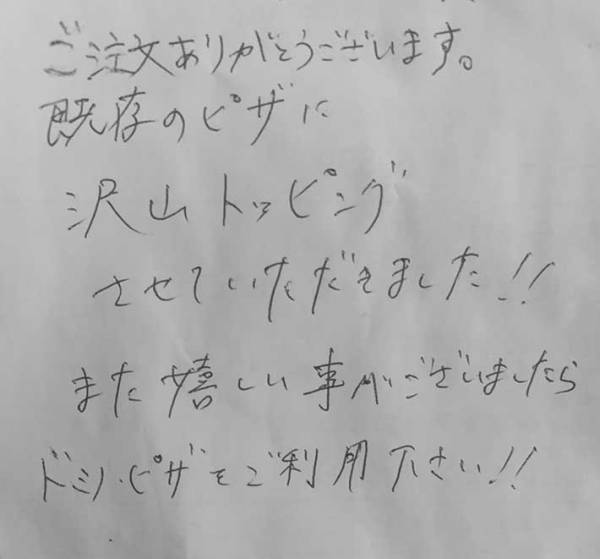 ご注文ありがとうございます。
既存のピザに
沢山トッピング
させていただきました!!
また嬉しい事がございましたら
ドミノ・ピザをご利用下さい!!